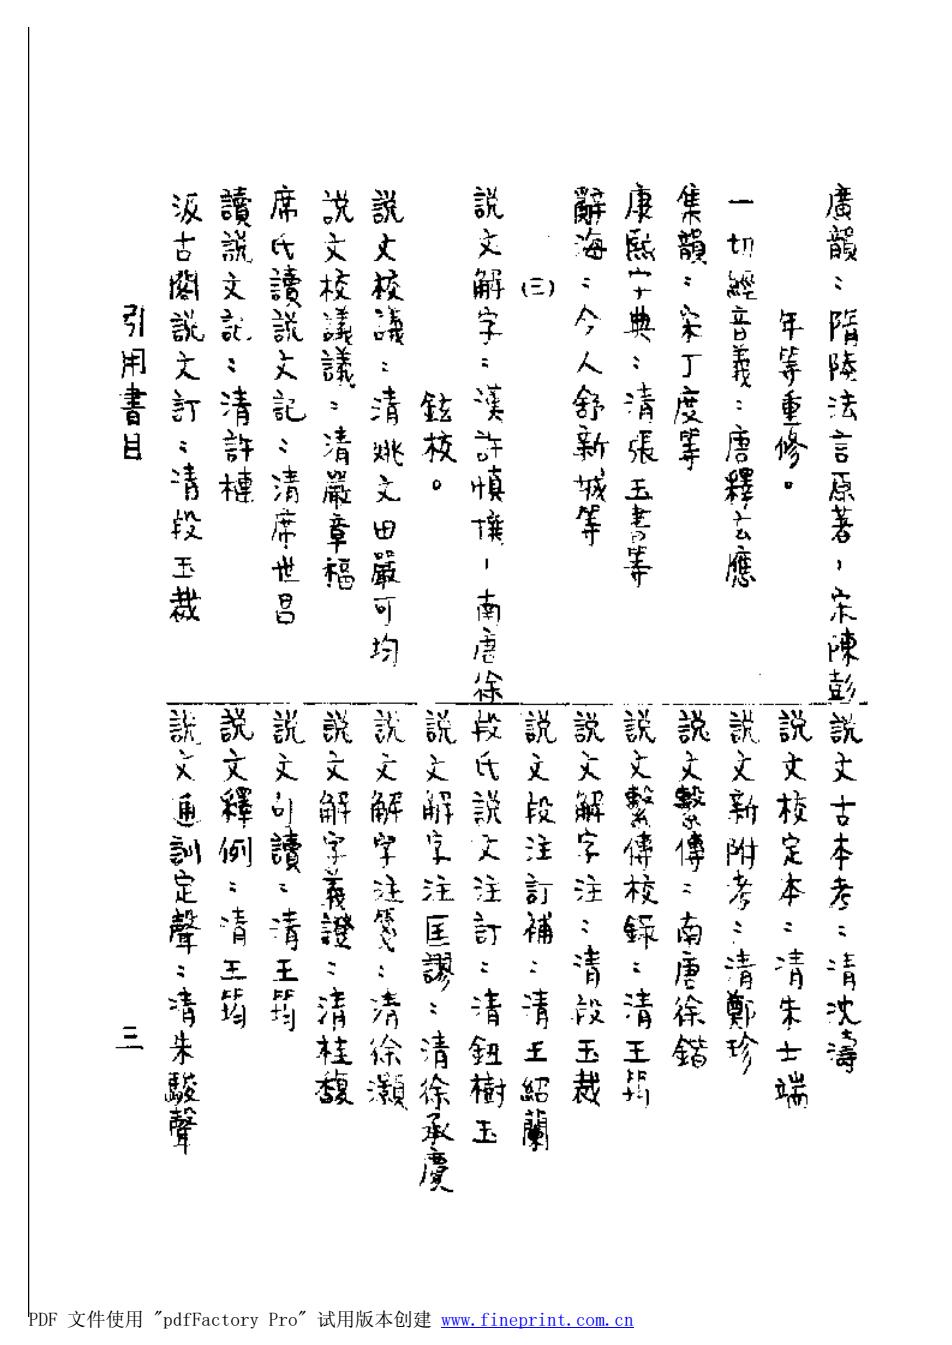 廣韻：隋陸法言原著，宋陳彭
年等重修。
一切經音義：唐釋玄應
集韻：宋丁度等
康熙字典：清張玉書等
辭海：今人舒新城等
(三)
說文解字：漢許慎撰，南唐徐
鉉校。
說文校議：清姚文田嚴可均
說文校議議：清嚴章福
席氏讀說文記：清席世昌
讀說文記：清許槤
汲古閣說文訂：清段玉裁
說文古本考：清沈濤
說文校定本：清朱士端
說文新附考：清鄭珍
說文繫傳：南唐徐鍇
說文繫傳校錄：清王筠
說文解字注：清段玉裁
說文段注訂補：清王紹蘭
段氏說文注訂：清鈕樹玉
說文解字注匡謬：清徐承慶
說文解字注箋：清徐灝
說文解字義證：清桂馥
說文句讀：清王筠
說文釋例：清王筠
說文通訓定聲：清朱駿聲
引用書目
三
PDF 文件使用 "pdfFactory Pro" 试用版本创建 www.fineprint.com.cn